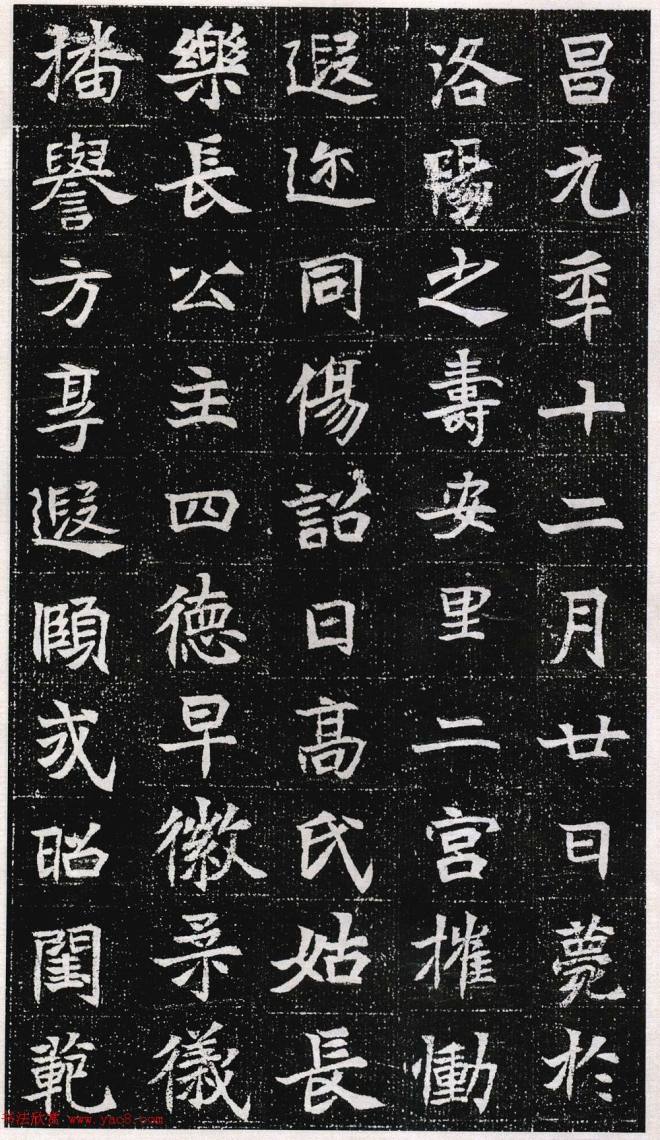 昌元年十二月廿日薨於
洛陽之壽安里二宮摧慟
遐迩同傷詔曰高氏姑長
樂長公主四德早徽柔儀
播譽方享遐頤式昭閨範
书法欣赏 www.yac8.com